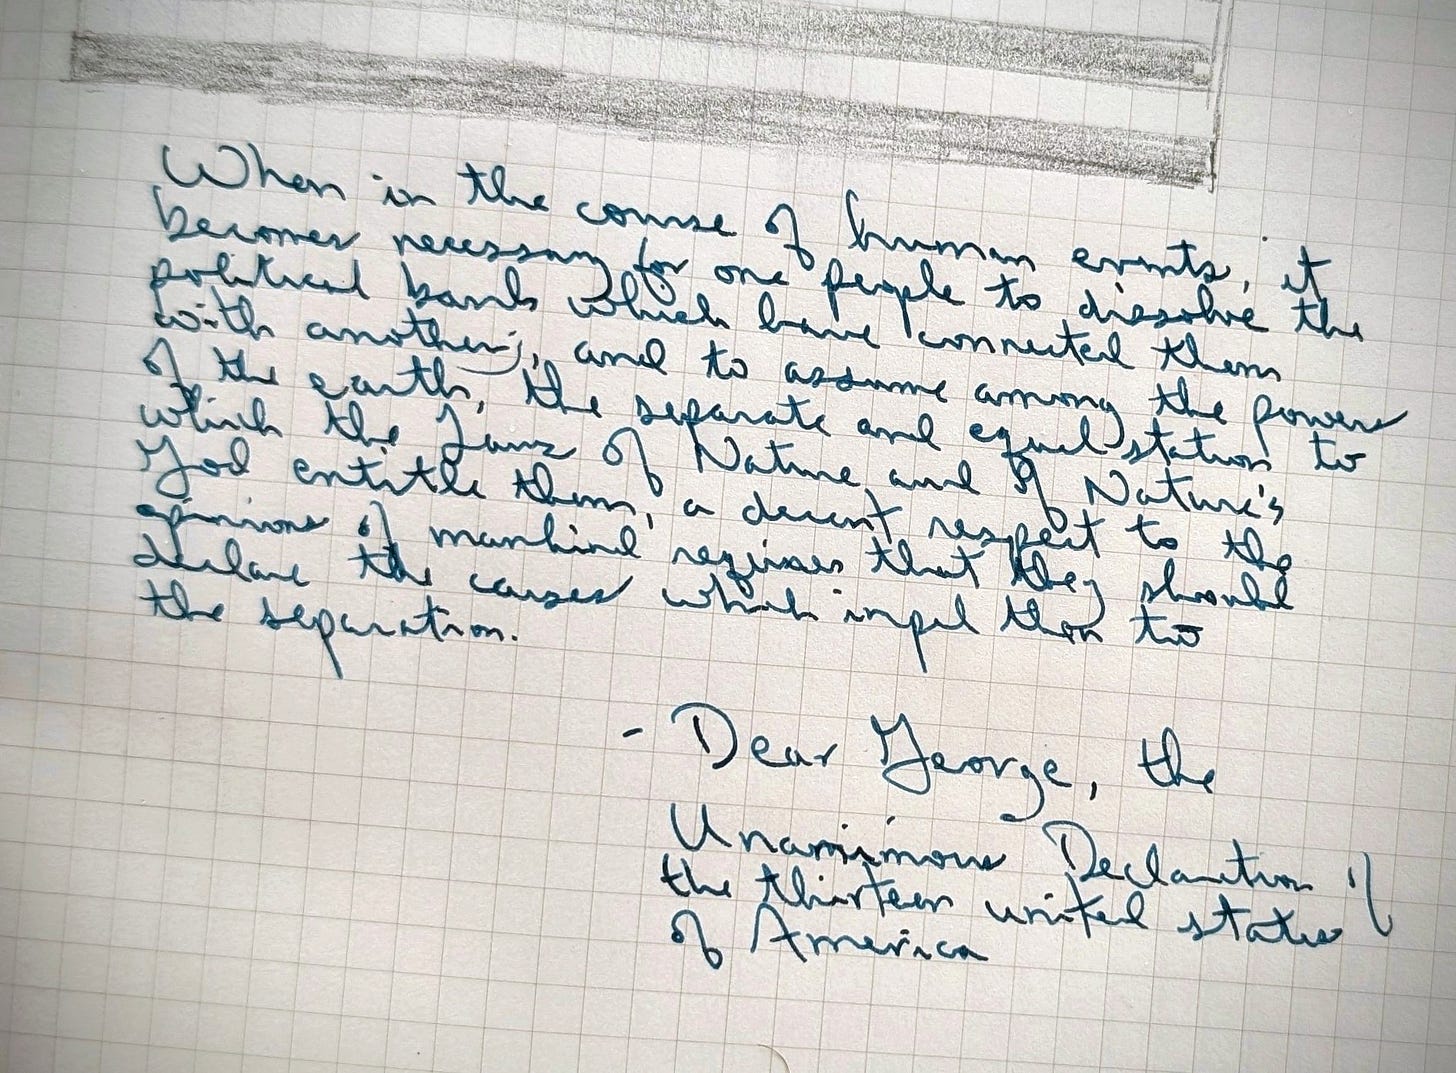 When in the course of human events, it
becomes necessary for one people to dissolve the
political bands which have connected them
with another, and to assume among the powers
of the earth, the separate and equal station to
which the Laws of Nature and of Nature's
God entitle them, a decent respect to the
opinions of mankind requires that they should
declare the causes which impel them to
the separation.
- Dear George, the
Unanimous Declaration of
the thirteen united states
of America